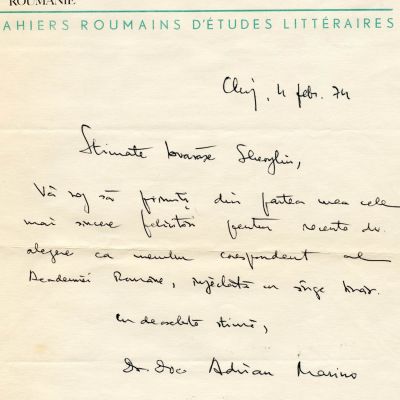 ROUMANIE
AHIERS ROUMAINS D'ÉTUDES LITTÉRAIRES
Cluj, 4 febr. 74
Stimate tovarăşe Gheorghiu,
Vă rog să primiţi din partea mea cele
mai sincere felicitări pentru recenta dv.
alegere ca membru corespondent al
Academiei Române, cu sânge tânăr.
Cu deosebită stimă,
Dr. Doc. Adrian Marino